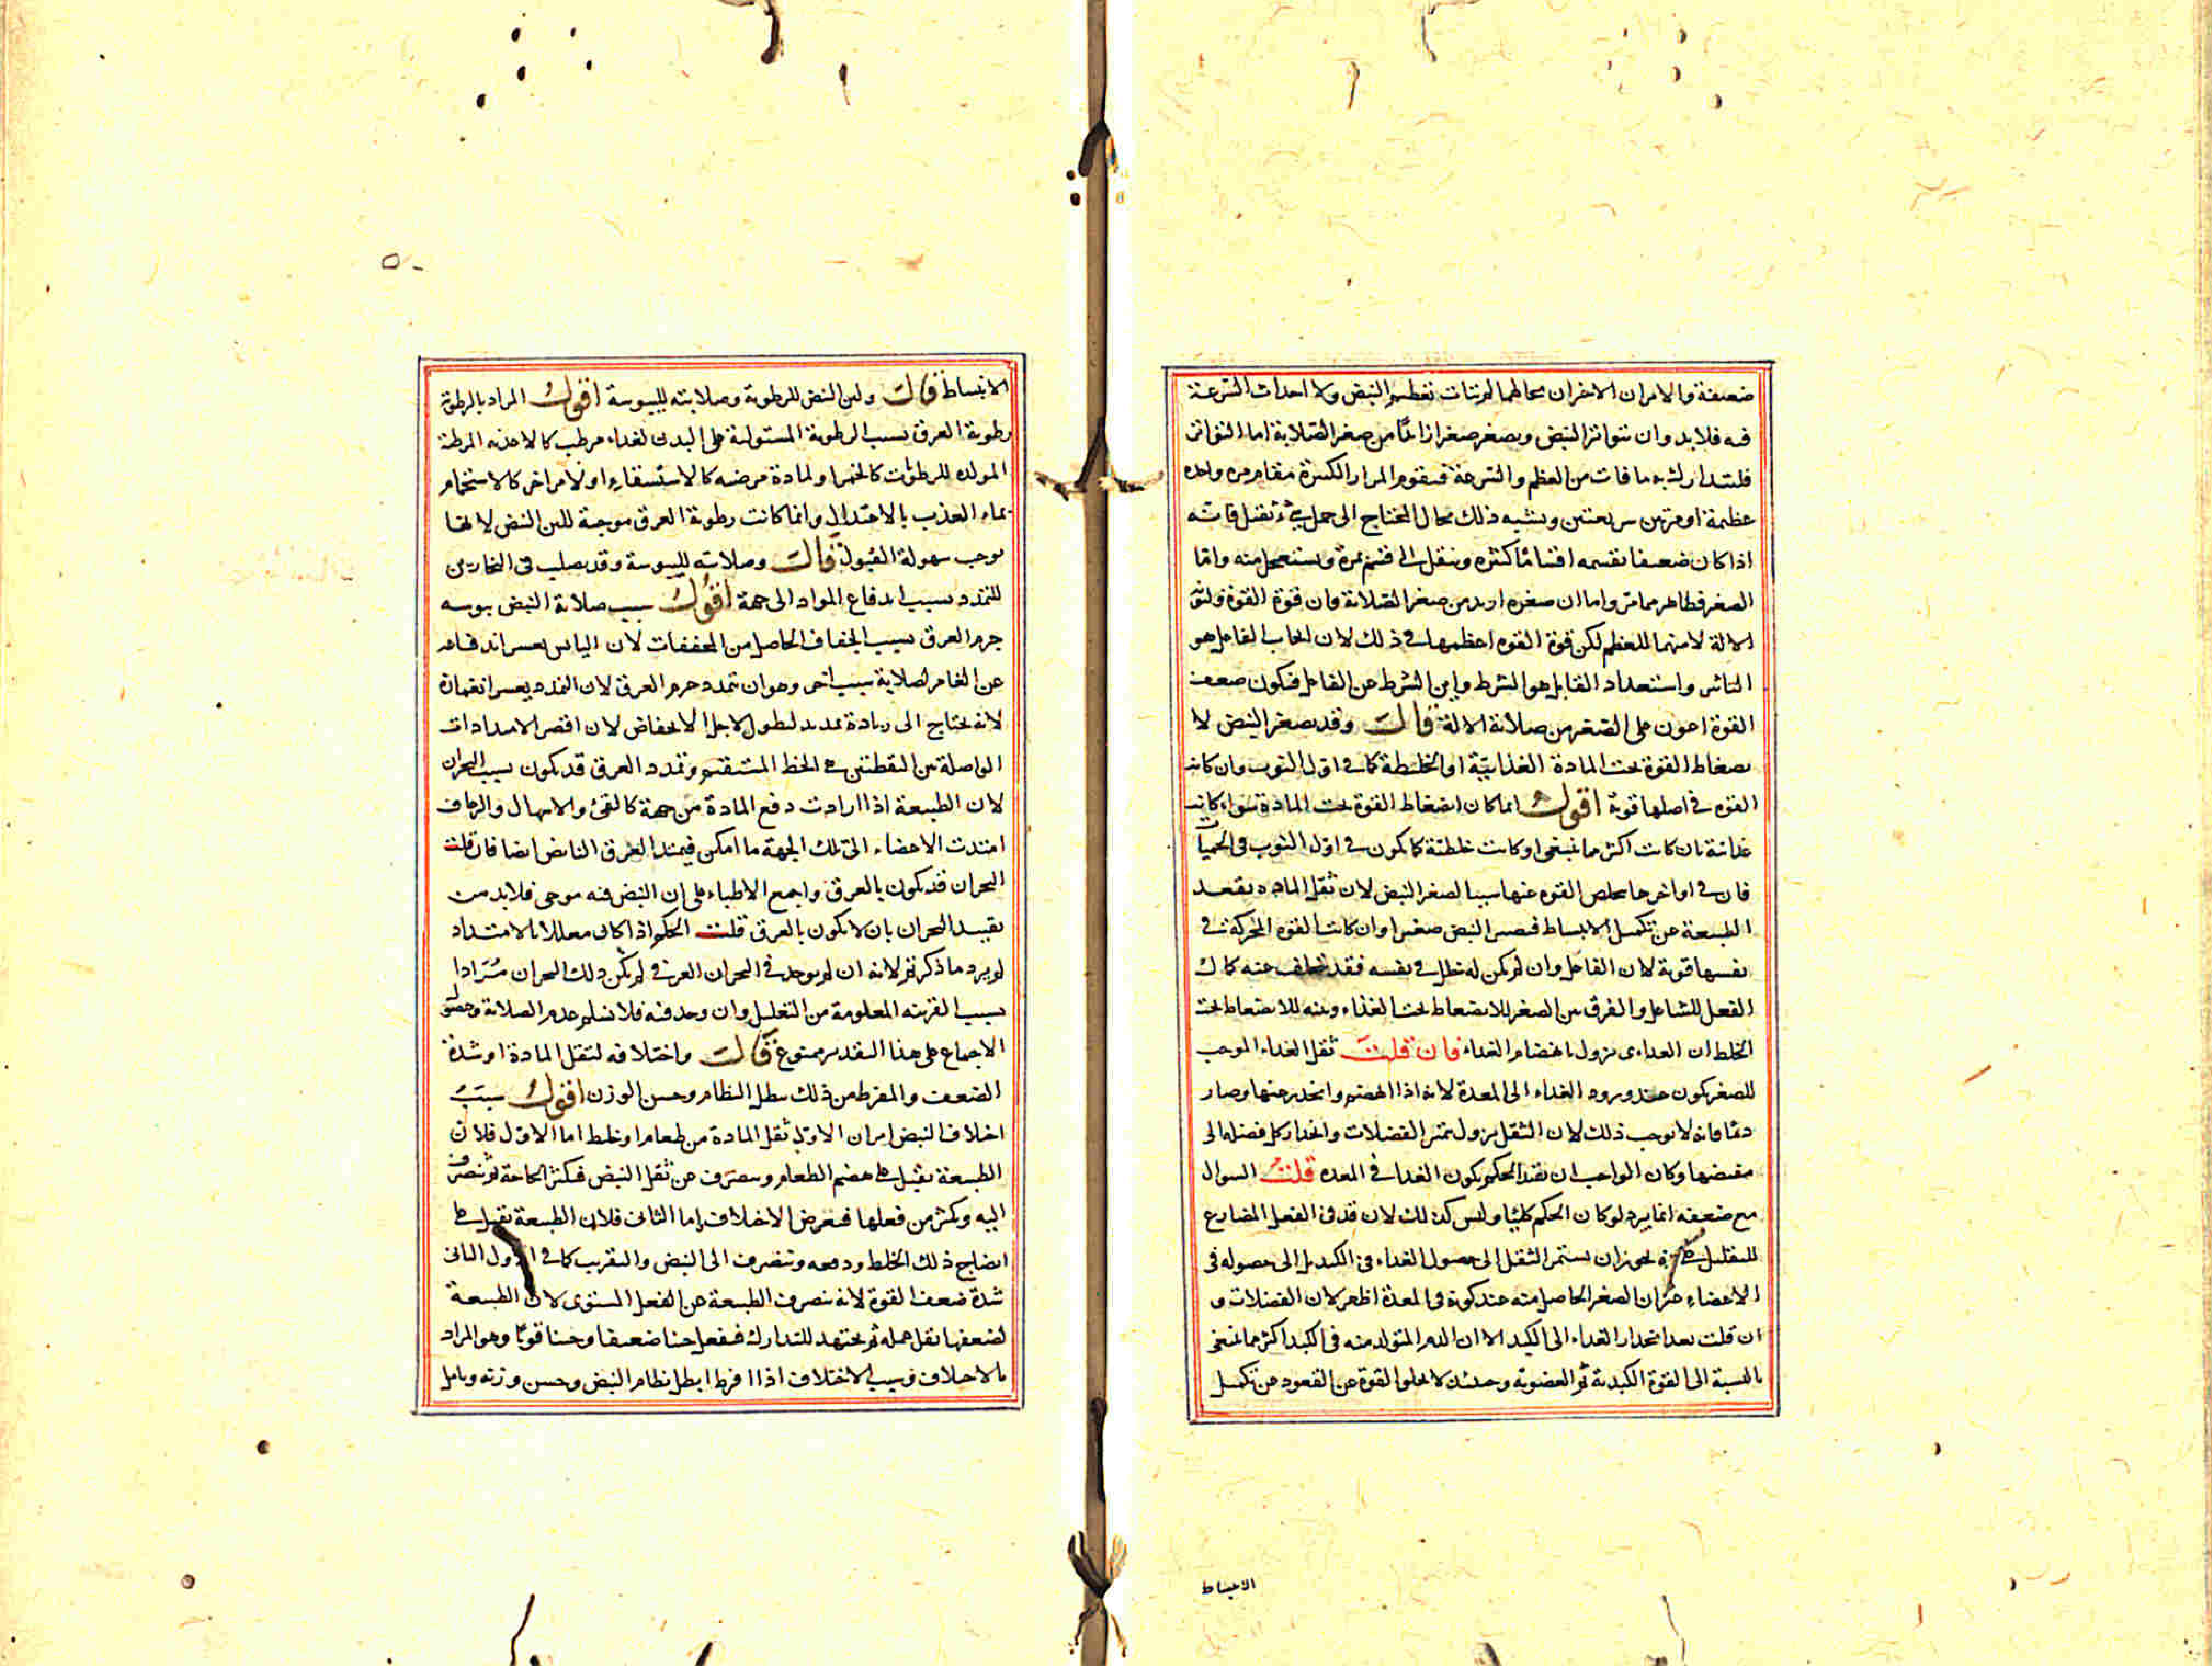 ضعيفة والامران الاخران بحالهما لم يتات تعظيم النبض ولا احداث السرعة
فيه فلابد وان يتواتر النبض ويصغر صغرا زائدا من صغر الصلابة اما التواتر
فليتدارك به ما فات من العظم والسرعة فيقوم المرار الكثيرة مقام مرة واحدة
عظيمة او مرتين سريعتين ويشبه ذلك بحال المحتاج الى حمل شئ ثقيل فانه
اذا كان ضعيفا يقسمه اقساما كثيرة وينقل كل قسم مرة ويستعجل منه واما
الصغر فظاهر مما مر واما ان صغره ازيد من صغر الصلابة فان قوة القوة ولين
الالة لازمتهما للعظم لكن قوة القوة اعظمها في ذلك لان الجانب الفاعل هو
التاثير واستعداد القابل هو الشرط واين الشرط من الفاعل فيكون ضعف
القوة اعون على الصغر من صلابة الالة قال وقد يصغر النبض لا
نضغاط القوة تحت المادة الغذائية او الخلطية كما في اول النوب وان كانت
القوة في اصلها قوية اقول انما كان انضغاط القوة تحت المادة سواء كانت
غذائية بان كانت اكثر مما ينبغي او كانت خلطية كما يكون في اول النوب في الحميات
فان في اواخرها يتخلص القوة عنها سببا لصغر النبض لان ثقل المادة يقعد
الطبيعة عن تكميل الانبساط فيصير النبض صغيرا وان كانت القوة المحركة في
نفسها قوية لان الفاعل وان لم يكن له خلل في نفسه فقد يتخلف عنه كمال
الفعل للشاغل والفرق بين الصغر للانضغاط تحت الغذاء وبينه للانضغاط تحت
الخلط ان الغذائي يزول بانهضام الغذاء فان قلت ثقل الغذاء الموجب
للصغر يكون عند ورود الغذاء الى المعدة لانه اذا انهضم وانحدر عنها وصار
دما فانه لا يوجب ذلك لان الثقل يزول بتميز الفضلات وانحدار كل فضلة الى
مفيضها وكان الواجب ان يقيد الحكم بكون الغذاء في المعدة قلت السوال
مع ضعفه انما يرد لو كان الحكم كليا وليس كذلك لان قد في الفعل المضارع
للتقليل يجوز ان يستمر الثقل الى حصول الغذاء في الكبد بل الى حصوله في
الاعضاء غير ان الصغر الحاصل منه عند كونه في المعدة اظهر لان الفضلات و
ان قلت بعد انحدار الغذاء الى الكبد الا ان الدم المتولد منه في الكبد اكثر مما ينبغي
بالنسبة الى القوة الكبدية ثم العضوية وحينئذ لا يخلو القوة عن القعود عن تكميل
الانبساط
الانبساط قال ولين النبض للرطوبة وصلابته لليبوسة اقول المراد بالرطوبة
رطوبة العرق بسبب الرطوبة المستولية على البدن لغذاء مرطب كالاغذية المرطبة
المولدة للرطوبات كالخمر او لمادة مرضية كالاستسقاء او لامر اخر كالاستحمام
بماء العذب بالاعتدال وانما كانت رطوبة العرق موجبة للين النبض لانها
توجب سهولة القبول قال وصلابته لليبوسة وقد يصلب في البحارين
للتمدد بسبب اندفاع المواد الى جهة اقول سبب صلابة النبض يبوسة
جرم العرق بسبب الجفاف الحاصل من المجففات لان اليابس يعسر اندفاعه
عن الغامز لصلابة بسبب اخر وهو ان تمدد جرم العرق لان التمدد يعسر انغمازه
لانه يحتاج الى زيادة تمدد لطول لاجل الانخفاض لان اقصر الامتدادات
الواصلة بين النقطتين هي الخط المستقيم وتمدد العرق قد يكون بسبب البحران
لان الطبيعة اذا ارادت دفع المادة من جهة كالقئ والاسهال والرعاف
امتدت الاعضاء الى تلك الجهة ما امكن فيمتد العرق النابض ايضا فان قلت
البحران قد يكون بالعرق واجمع الاطباء على ان النبض فيه موجي فلابد من
تقييد البحران بان لا يكون بالعرق قلت الحكم اذا كان معللا بالامتداد
لم يرد ما ذكرتم لانه ان لم يوجد في البحران العرقي لم يكن ذلك البحران مرادا
بسبب القرينة المعلومة من التعليل وان وجد فيه فلا نسلم عدم الصلابة وحصول
الاجماع على هذا التقدير ممنوع قال واختلافه لثقل المادة او شدة
الضعف والمفرط من ذلك يبطل النظام وحسن الوزن اقول سبب
اختلاف النبض امران الاول ثقل المادة من طعام او خلط اما الاول فلان
الطبيعة تقبل على هضم الطعام وتنصرف عن ثقل النبض فتكثر الحاجة ثم تنصرف
اليه ويكثر من فعلها فيعرض الاختلاف اما الثاني فلان الطبيعة تقبل على
انضاج ذلك الخلط ودفعه وتنصرف الى النبض والتقريب كما في الاول الثاني
شدة ضعف القوة لانه تنصرف الطبيعة عن الفعل المستوى لان الطبيعة
لضعفها يقل عمله ثم يجتهد للتدارك فيفعل حينا ضعيفا وحينا قويا وهو المراد
بالاختلاف وسبب الاختلاف اذا افرط ابطل نظام النبض وحسن وزنه